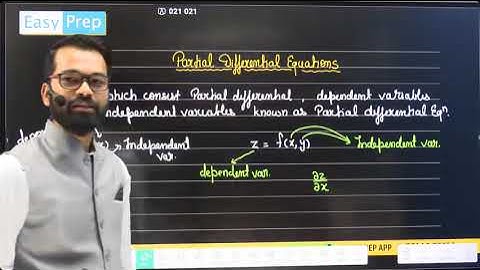 Easy
Prep
021 021
Partial Differential Equations
which consist Partial differential, dependent variables
independent variables known as Partial differential Eqn.
Independent var.
z = f(x,y)
Independent var.
dependent var.
∂z/∂x
EP APP